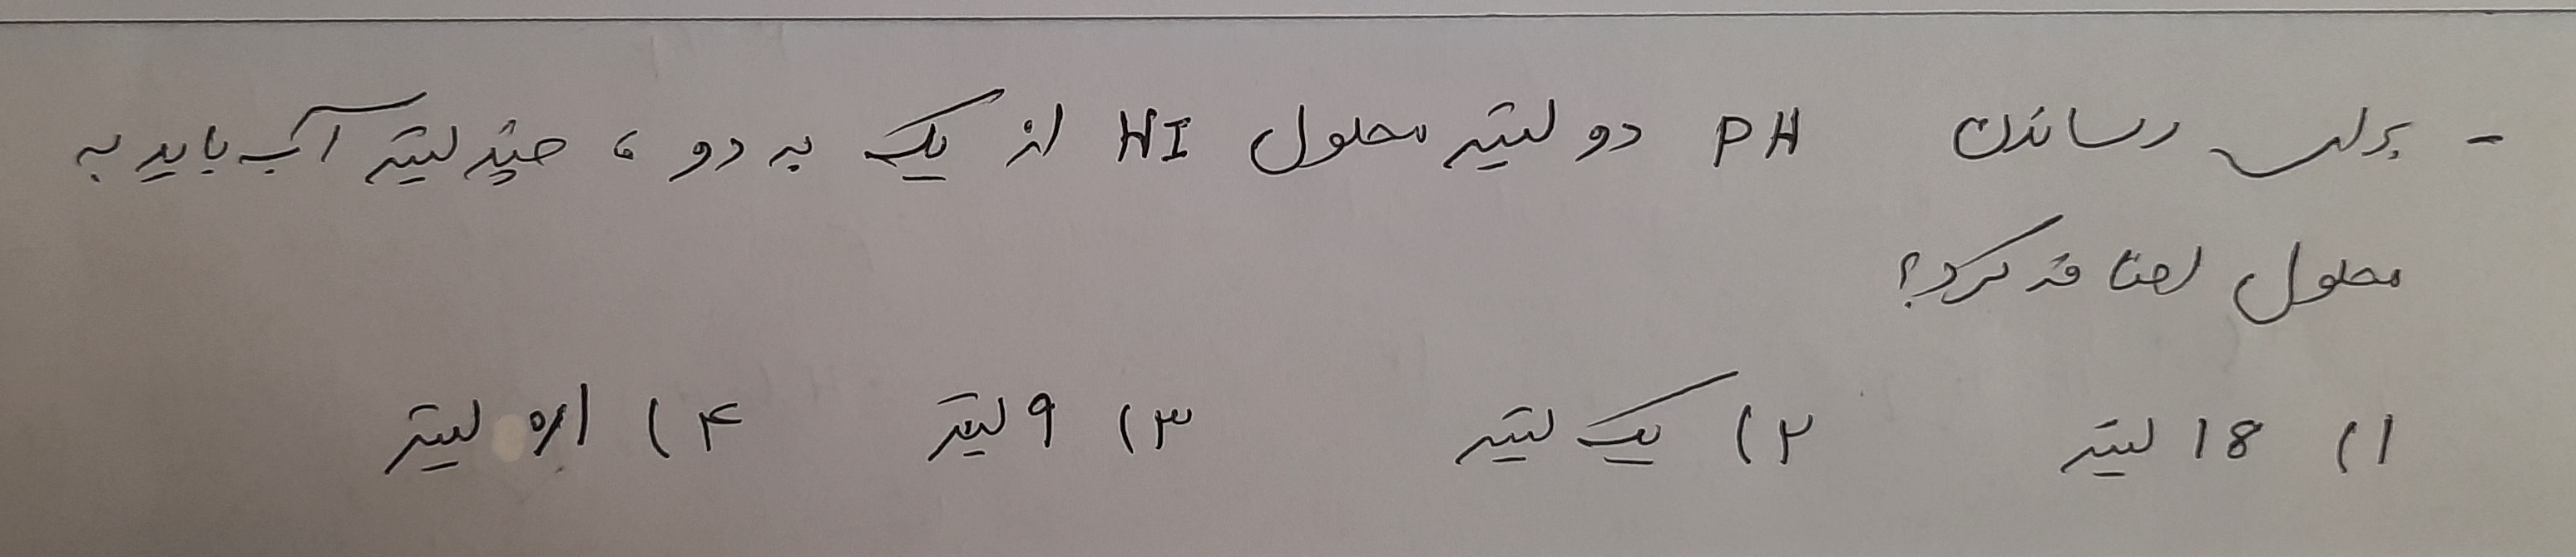 - برای رساندن PH دو لیتر محلول HI از یک به دو ، چند لیتر آب باید به
محلول اضافه کرد؟
۱) 18 لیتر ۲) یک لیتر ۳) ۹ لیتر ۴) ۰/۱ لیتر